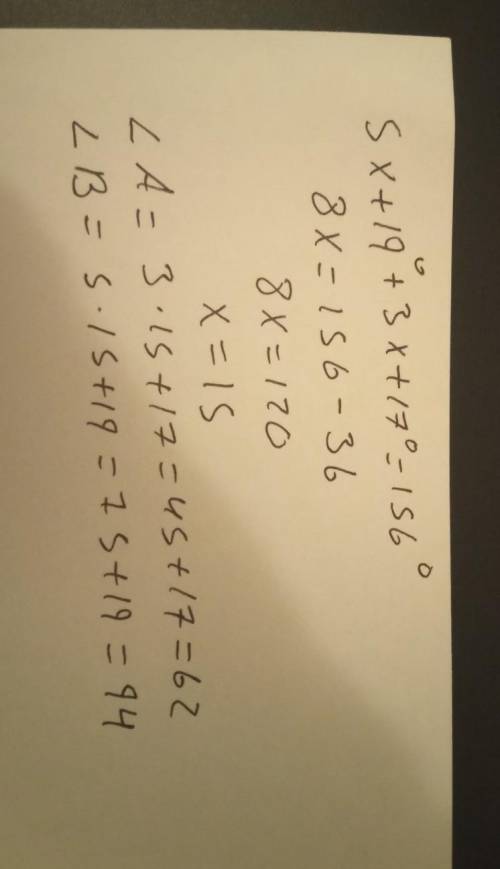 5x+19°+3x+17°=156°
8x=156-36
8x=120
x=15
∠A=3·15+17=45+17=62
∠B=5·15+19=75+19=94